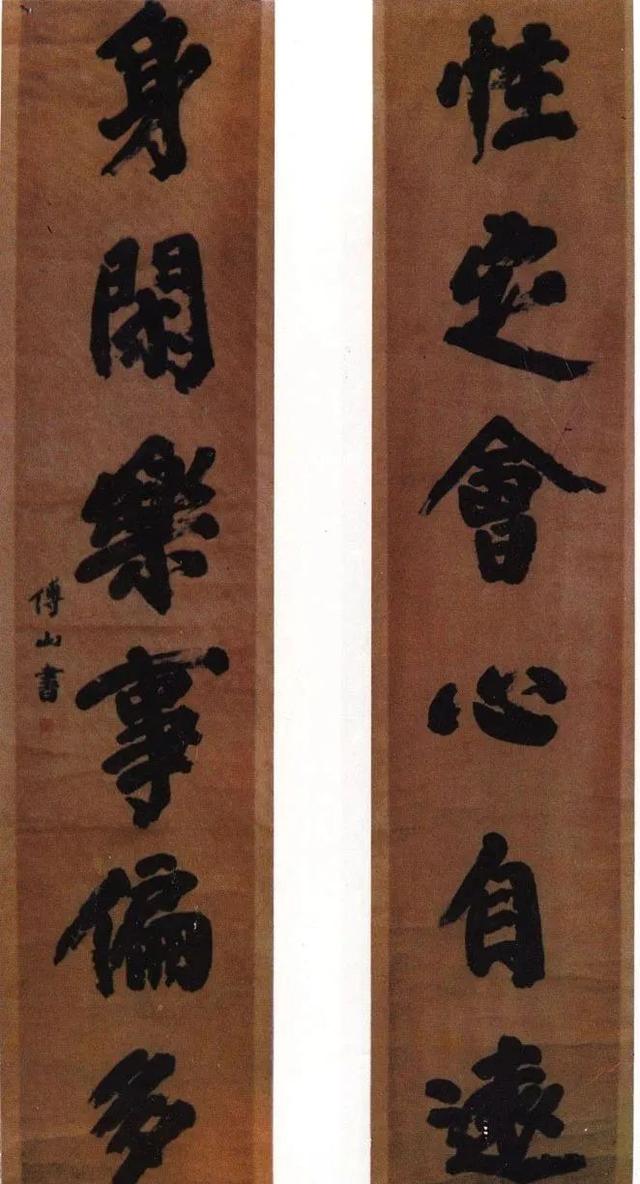 性定會心自遠
身閑樂事偏多
傅山書